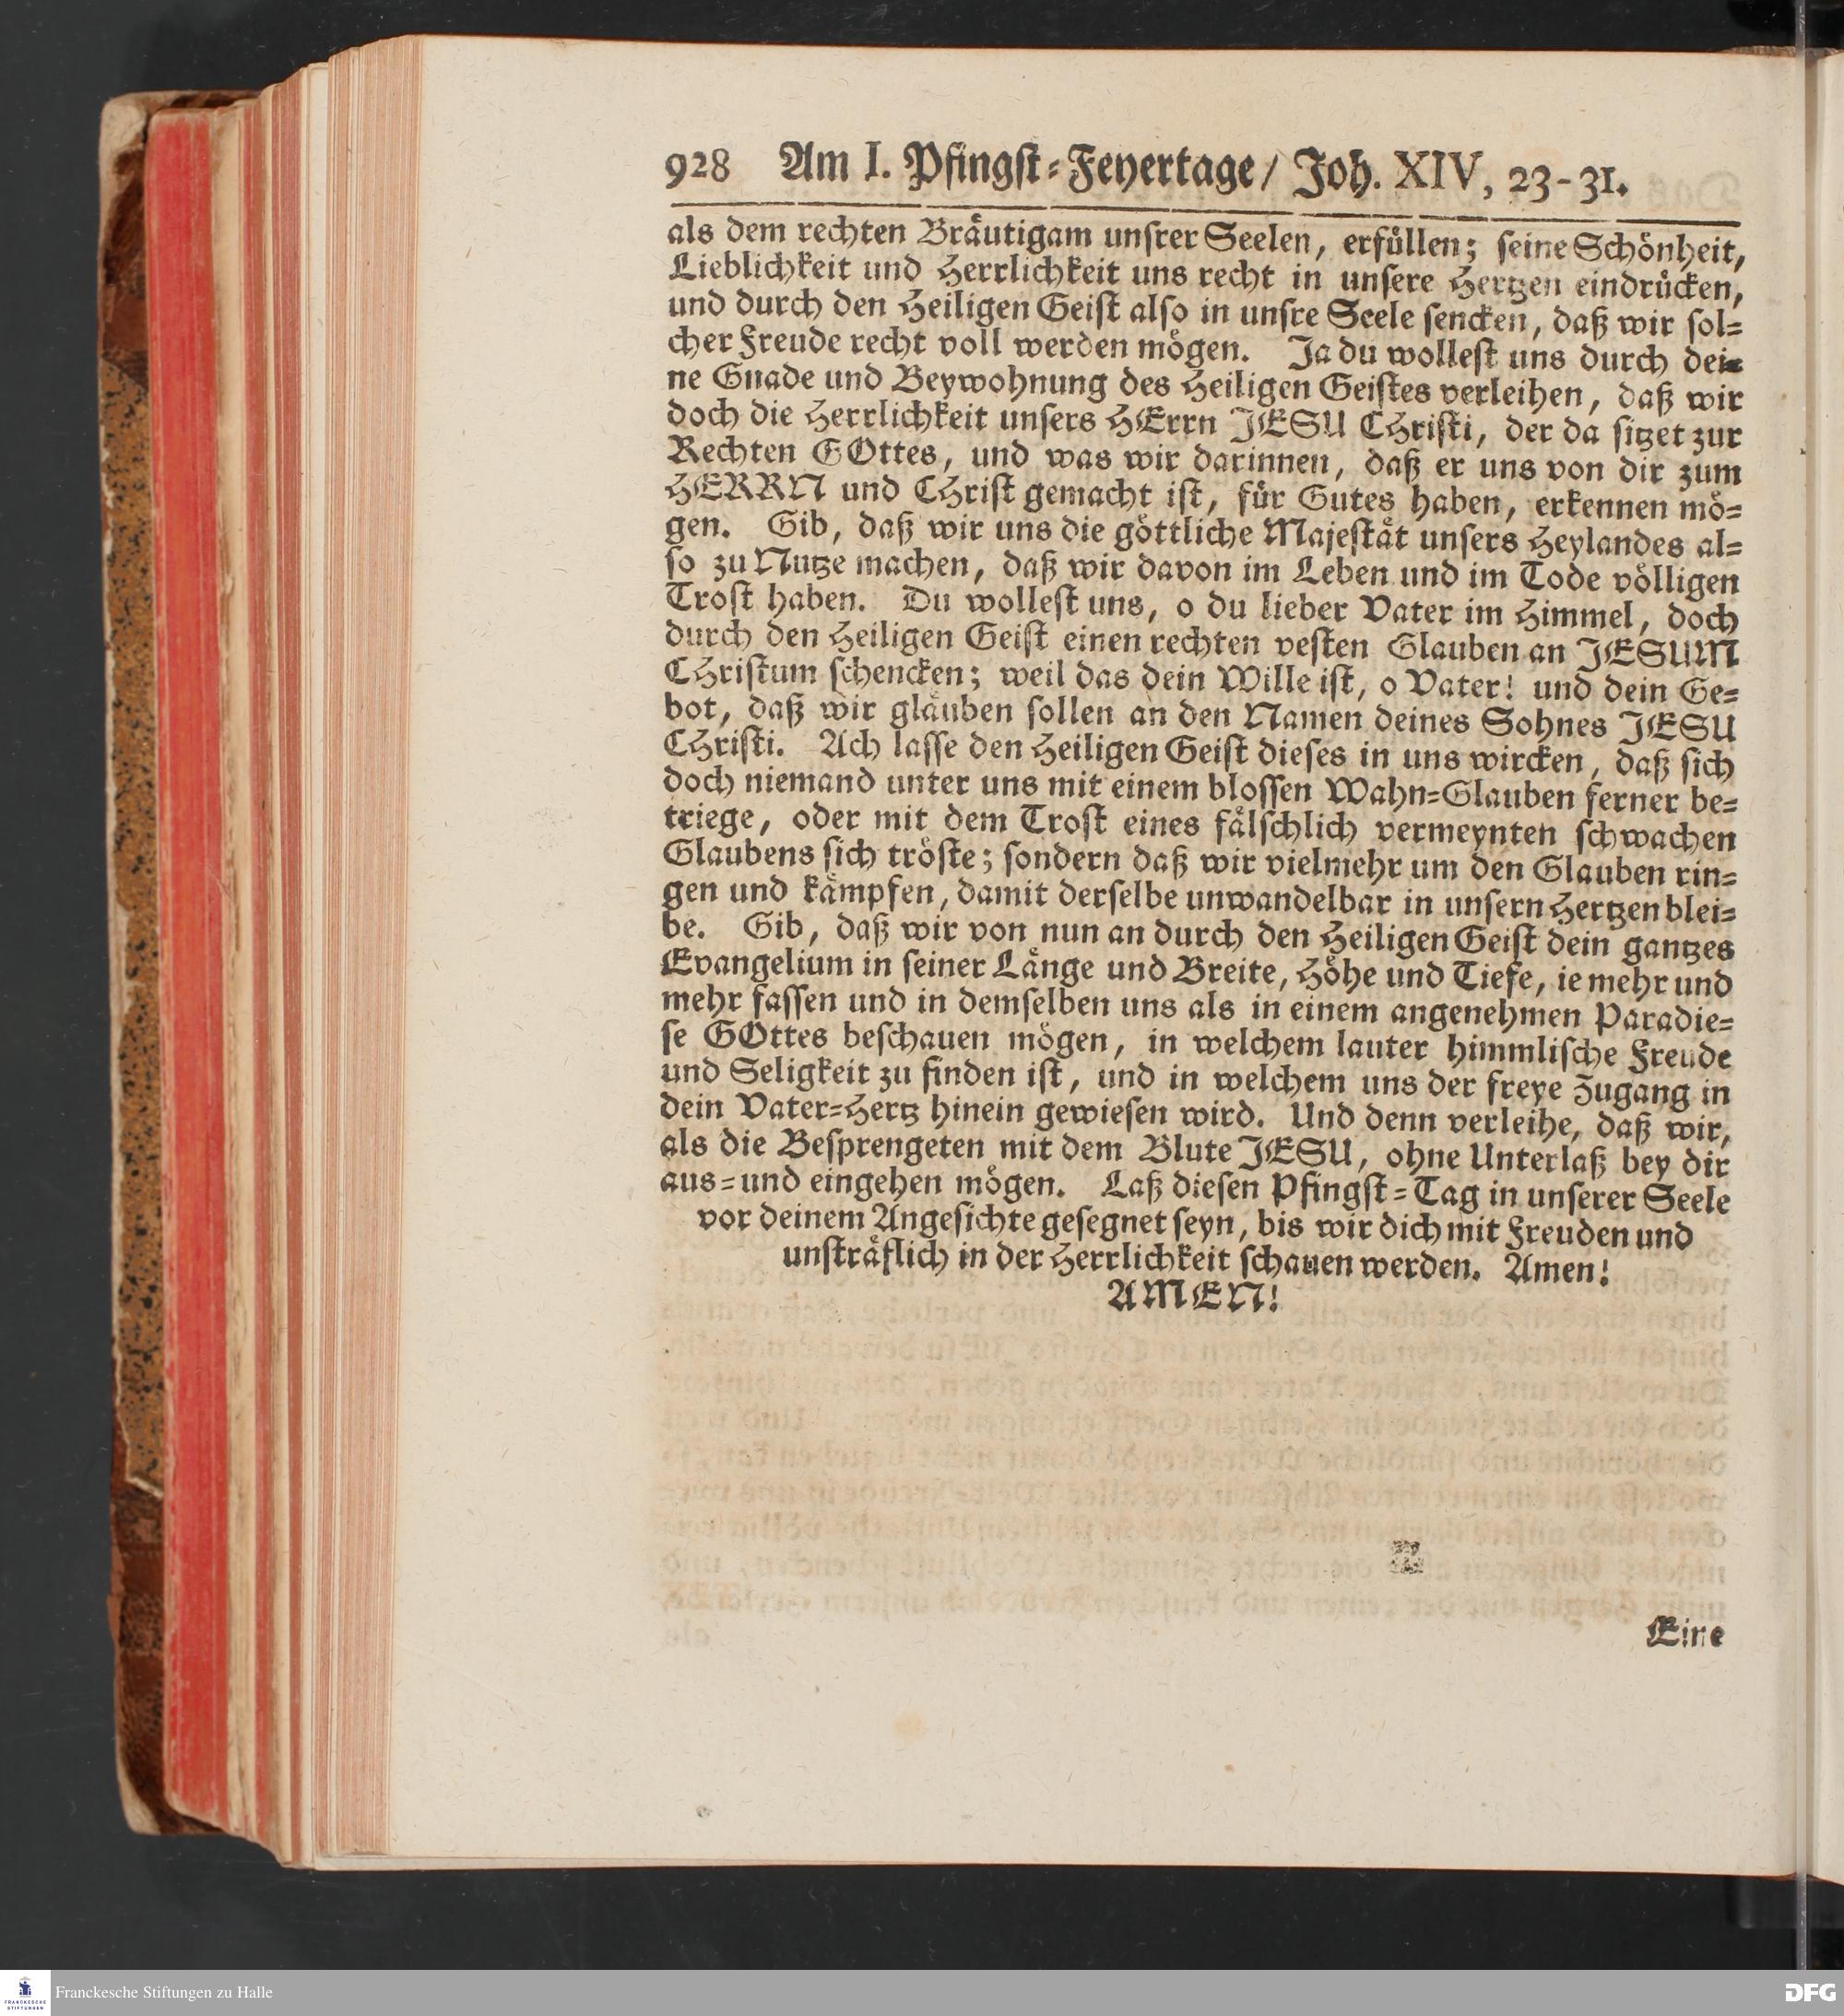 928 Am I. Pfingst-Feyertage/ Joh. XIV, 23-31.
als dem rechten Bräutigam unsrer Seelen, erfüllen; seine Schönheit,
Lieblichkeit und Herrlichkeit uns recht in unsere Hertzen eindrücken,
und durch den Heiligen Geist also in unsre Seele sencken, daß wir sol-
cher Freude recht voll werden mögen. Ja du wollest uns durch dei-
ne Gnade und Beywohnung des Heiligen Geistes verleihen, daß wir
doch die Herrlichkeit unsers HErrn JESU CHristi, der da sitzet zur
Rechten GOttes, und was wir darinnen, daß er uns von dir zum
HERRN und CHrist gemacht ist, für Gutes haben, erkennen mö-
gen. Gib, daß wir uns die göttliche Majestät unsers Heylandes al-
so zu Nutze machen, daß wir davon im Leben und im Tode völligen
Trost haben. Du wollest uns, o du lieber Vater im Himmel, doch
durch den Heiligen Geist einen rechten vesten Glauben an JESUM
CHristum schencken; weil das dein Wille ist, o Vater! und dein Ge-
bot, daß wir gläuben sollen an den Namen deines Sohnes JESU
CHristi. Ach lasse den Heiligen Geist dieses in uns wircken, daß sich
doch niemand unter uns mit einem blossen Wahn-Glauben ferner be-
triege, oder mit dem Trost eines fälschlich vermeynten schwachen
Glaubens sich tröste; sondern daß wir vielmehr um den Glauben rin-
gen und kämpfen, damit derselbe unwandelbar in unsern Hertzen blei-
be. Gib, daß wir von nun an durch den Heiligen Geist dein gantzes
Evangelium in seiner Länge und Breite, Höhe und Tiefe, ie mehr und
mehr fassen und in demselben uns als in einem angenehmen Paradie-
se GOttes beschauen mögen, in welchem lauter himmlische Freude
und Seligkeit zu finden ist, und in welchem uns der freye Zugang in
dein Vater-Hertz hinein gewiesen wird. Und denn verleihe, daß wir,
als die Besprengeten mit dem Blute JESU, ohne Unterlaß bey dir
aus- und eingehen mögen. Laß diesen Pfingst-Tag in unserer Seele
vor deinem Angesichte gesegnet seyn, bis wir dich mit Freuden und
unsträflich in der Herrlichkeit schauen werden. Amen!
AMEN!
Eine
FRANCKESCHE STIFTUNGEN
Franckesche Stiftungen zu Halle
DFG